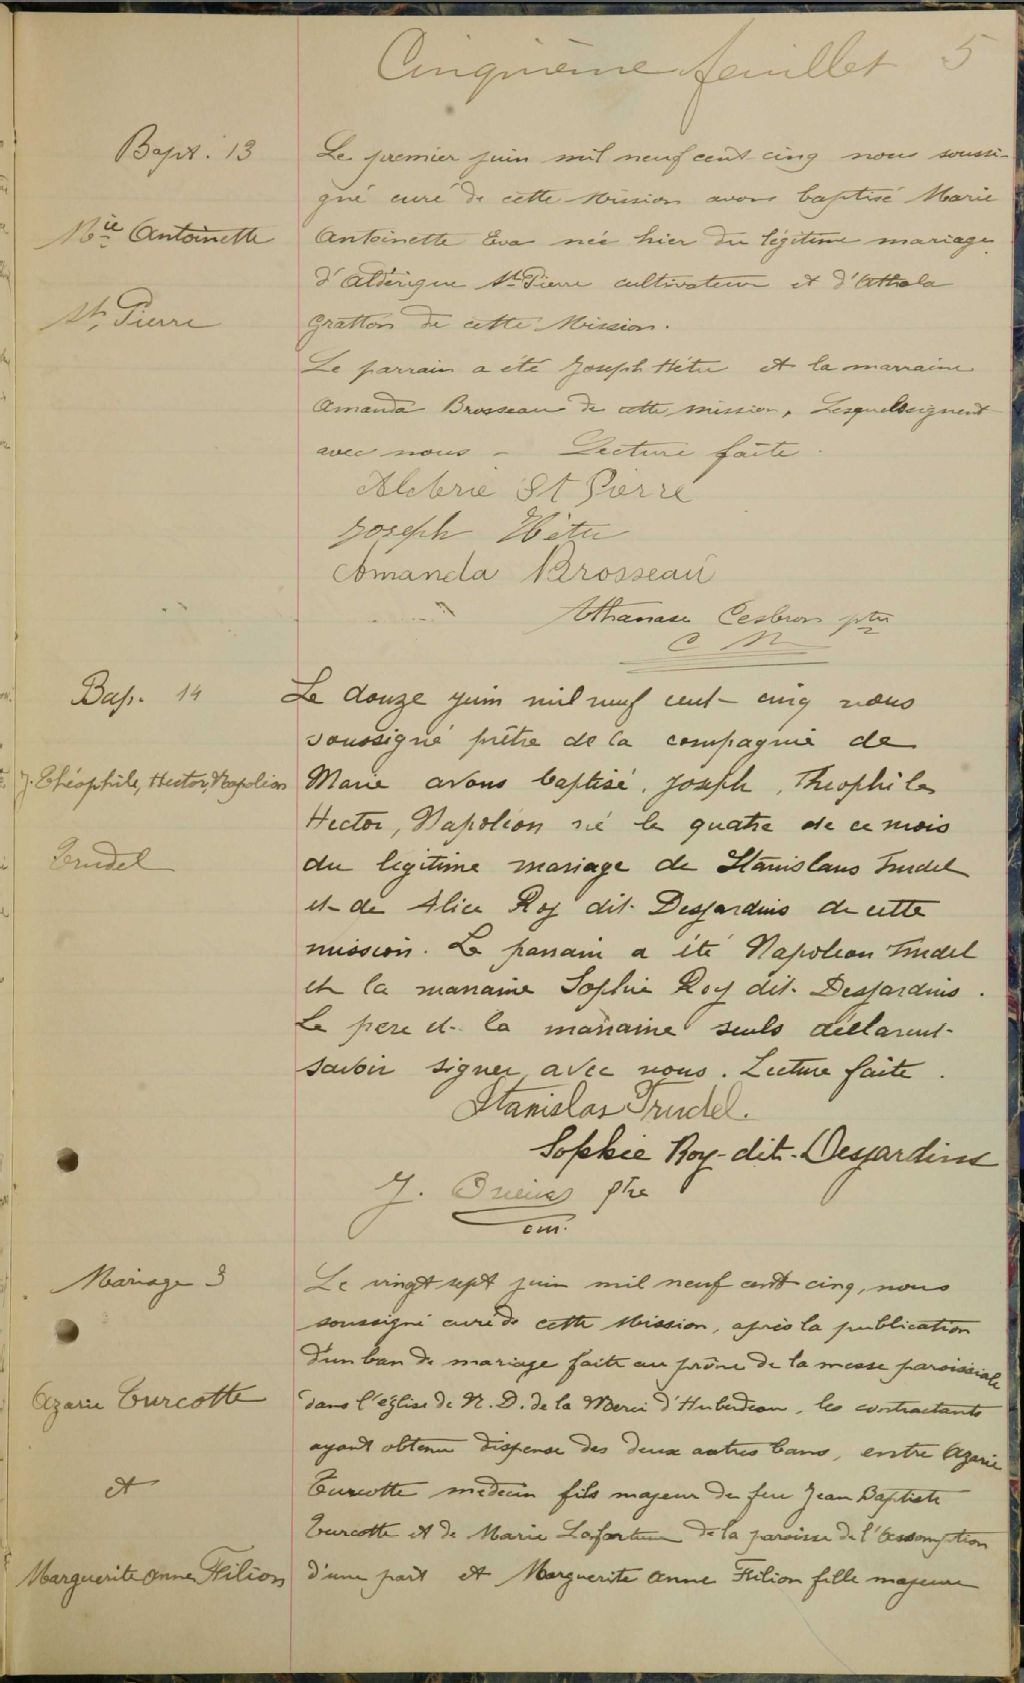 Cinquième feuillet 5
Bapt. 13
Mie Antoinette
St Pierre
Le premier juin mil neuf cent cinq nous soussi-
gné curé de cette Mission avons baptisé Marie
Antoinette Eva née hier du légitime mariage
d'Aldérique St Pierre cultivateur et d'Athala
Gratton de cette Mission.
Le parrain a été Joseph Hétu et la marraine
Amanda Brosseau de cette mission, Lesquels signent
avec nous - Lecture faite.
Alderie St Pierre
Joseph Hétu
Amanda Brosseau
Athanase Cesbron ptre
C M
Bap. 14
J. Théophile, Hector, Napoléon
Trudel
Le douze juin mil neuf cent cinq nous
soussigné prêtre de la compagnie de
Marie avons baptisé, Joseph, Théophile
Hector, Napoléon né le quatre de ce mois
du légitime mariage de Stanislaus Trudel
et de Alice Roy dit Desjardins de cette
mission. Le parrain a été Napoleon Trudel
et la marraine Sophie Roy dit Desjardins.
Le pere et la marraine seuls déclarent
savoir signer avec nous. Lecture faite.
Stanislas Trudel.
Sophie Roy-dit-Desjardins
J. ptre
c m.
Mariage 3
Azarie Turcotte
et
Marguerite Anne Filion
Le vingt sept juin mil neuf cent cinq, nous
soussigné curé de cette Mission, après la publication
d'un ban de mariage faite au prône de la messe paroissiale
dans l'église de N. D. de la Merci d'Huberdeau, les contractants
ayant obtenu dispense des deux autres bans, entre Azarie
Turcotte medecin fils majeur de feu Jean Baptiste
Turcotte et de Marie Lafortune de la paroisse de l'Assomption
d'une part et Marguerite Anne Filion fille majeure